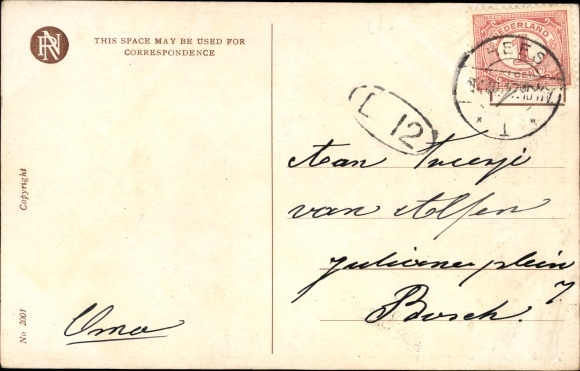 RN
THIS SPACE MAY BE USED FOR
CORRESPONDENCE
NEDERLAND
L 12
1
Aan Treesje
van Alfen
Julianaplein
7
Bosch.
Oma
Copyright
No 2001